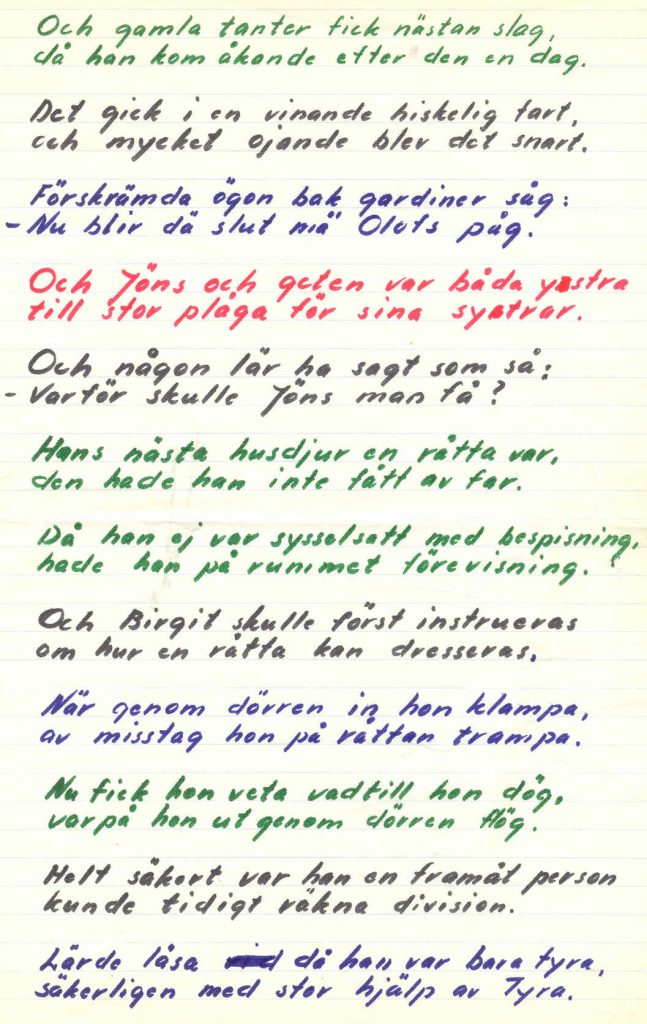 Och gamla tanter fick nästan slag,
då han kom åkande efter den en dag.
Det gick i en vinande hiskelig fart,
och mycket ojande blev det snart.
Förskrämda ögon bak gardiner såg:
- Nu blir dä slut mä Olofs påg.
Och Jöns och geten var båda ystra
till stor plåga för sina systrar.
Och någon lär ha sagt som så:
- Varför skulle Jöns man få?
Hans nästa husdjur en råtta var,
den hade han inte fått av far.
Då han ej var sysselsatt med bespisning,
hade han på rummet förevisning.
Och Birgit skulle först instrueras
om hur en råtta kan dresseras.
När genom dörren in hon klampa,
av misstag hon på råttan trampa.
Nu fick hon veta vadtill hon dög,
varpå hon ut genom dörren flög.
Helt säkert var han en framåt person
kunde tidigt räkna division.
Lärde låsa då han var bara fyra,
säkerligen med stor hjälp av Tyra.